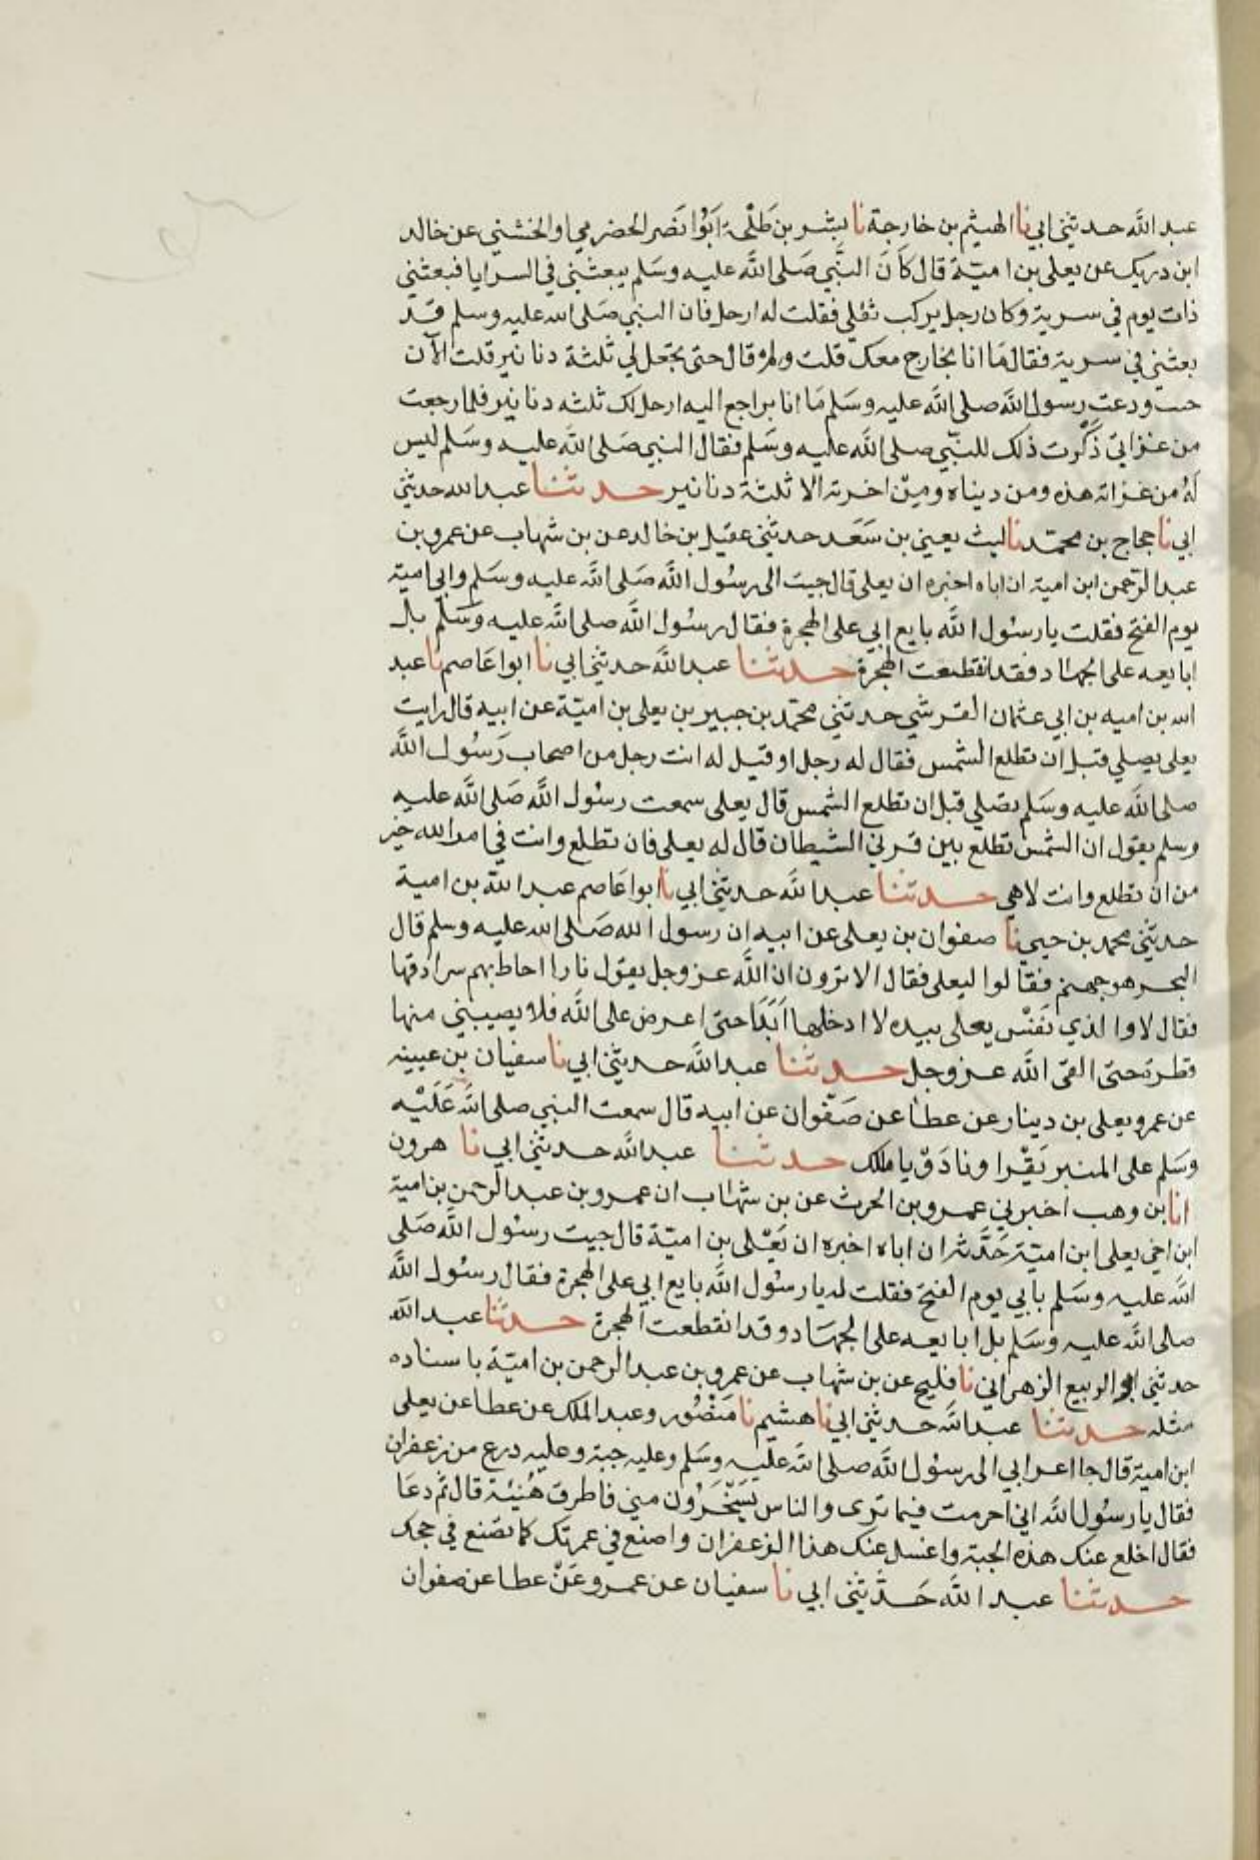 عبد الله حدثني ابي نا الهيثم بن خارجة نا بشر بن طلحة ابوا نصر الحضرمي او الخشني عن خالد
ابن دريك عن يعلى بن امية قال كان النبي صلى الله عليه وسلم يبعثني في السرايا فبعثني
ذات يوم في سرية وكان رجل يركب ثقلي فقلت له ارحل فان النبي صلى الله عليه وسلم قد
بعثني في سرية فقال ما انا بخارج معك قلت ولم قال حتى تجعل لي ثلثة دنانير قلت الآن
حيث ودعت رسول الله صلى الله عليه وسلم ما انا براجع اليه ارحل لك ثلثه دنانير فلما رجعت
من غزاتي ذكرت ذلك للنبي صلى الله عليه وسلم فقال النبي صلى الله عليه وسلم ليس
له من غزاته هذه ومن دنياه ومن اخرته الا ثلثة دنانير حدثنا عبد الله حدثني
ابي نا حجاج بن محمد نا ليث يعني بن سعد حدثني عقيل بن خالد عن بن شهاب عن عمرو بن
عبد الرحمن ابن امية ان اباه اخبره ان يعلى قال جيت الى رسول الله صلى الله عليه وسلم وابي امية
يوم الفتح فقلت يا رسول الله بايع ابي على الهجرة فقال رسول الله صلى الله عليه وسلم بل
ابايعه على الجهاد فقد انقطعت الهجرة حدثنا عبد الله حدثني ابي نا ابوا عاصم نا عبد
الله بن اميه بن ابي عثمان القرشي حدثني محمد بن جبير بن يعلى بن امية عن ابيه قال رايت
يعلى يصلي قبل ان تطلع الشمس فقال له رجل او قيل له انت رجل من اصحاب رسول الله
صلى الله عليه وسلم تصلي قبل ان تطلع الشمس قال يعلى سمعت رسول الله صلى الله عليه
وسلم يقول ان الشمس تطلع بين قرني الشيطان قال له يعلى فان تطلع وانت في امر الله خير
من ان تطلع وانت لاهي حدثنا عبد الله حدثني ابي نا ابوا عاصم عبد الله بن امية
حدثني محمد بن حيي نا صفوان بن يعلى عن ابيه ان رسول الله صلى الله عليه وسلم قال
البحر هو جهنم فقالوا ليعلى فقال الا ترون ان الله عز وجل يقول نارا احاط بهم سرادقها
فقال لا والذي نفس يعلى بيده لا ادخلها ابدا حتى اعرض على الله فلا يصيبني منها
قطرة حتى القى الله عز وجل حدثنا عبد الله حدثني ابي نا سفيان بن عيينه
عن عمرو يعلى بن دينار عن عطا عن صفوان عن ابيه قال سمعت النبي صلى الله عليه
وسلم على المنبر يقرا ونادوا يا ملك حدثنا عبد الله حدثني ابي نا هرون
انا بن وهب اخبرني عمرو بن الحرث عن بن شهاب ان عمرو بن عبد الرحمن بن امية
ابن اخي يعلى ابن امية حدثه ان اباه اخبره ان يعلى بن امية قال جيت رسول الله صلى
الله عليه وسلم بابي يوم الفتح فقلت له يا رسول الله بايع ابي على الهجرة فقال رسول الله
صلى الله عليه وسلم بل ابايعه على الجهاد وقد انقطعت الهجرة حدثنا عبد الله
حدثني ابو الربيع الزهراني نا فليح عن بن شهاب عن عمرو بن عبد الرحمن بن امية باسناده
مثله حدثنا عبد الله حدثني ابي نا هشيم نا منصور وعبد الملك عن عطا عن يعلى
ابن امية قال جا اعرابي الى رسول الله صلى الله عليه وسلم وعليه جبة وعليه درع من زعفران
فقال يا رسول الله اني احرمت فيما ترى والناس يسخرون مني فاطرق هنيئة قال ثم دعا
فقال اخلع عنك هذه الجبة واغسل عنك هذا الزعفران واصنع في عمرتك كما تصنع في حجك
حدثنا عبد الله حدثني ابي نا سفيان عن عمرو عن عطا عن صفوان